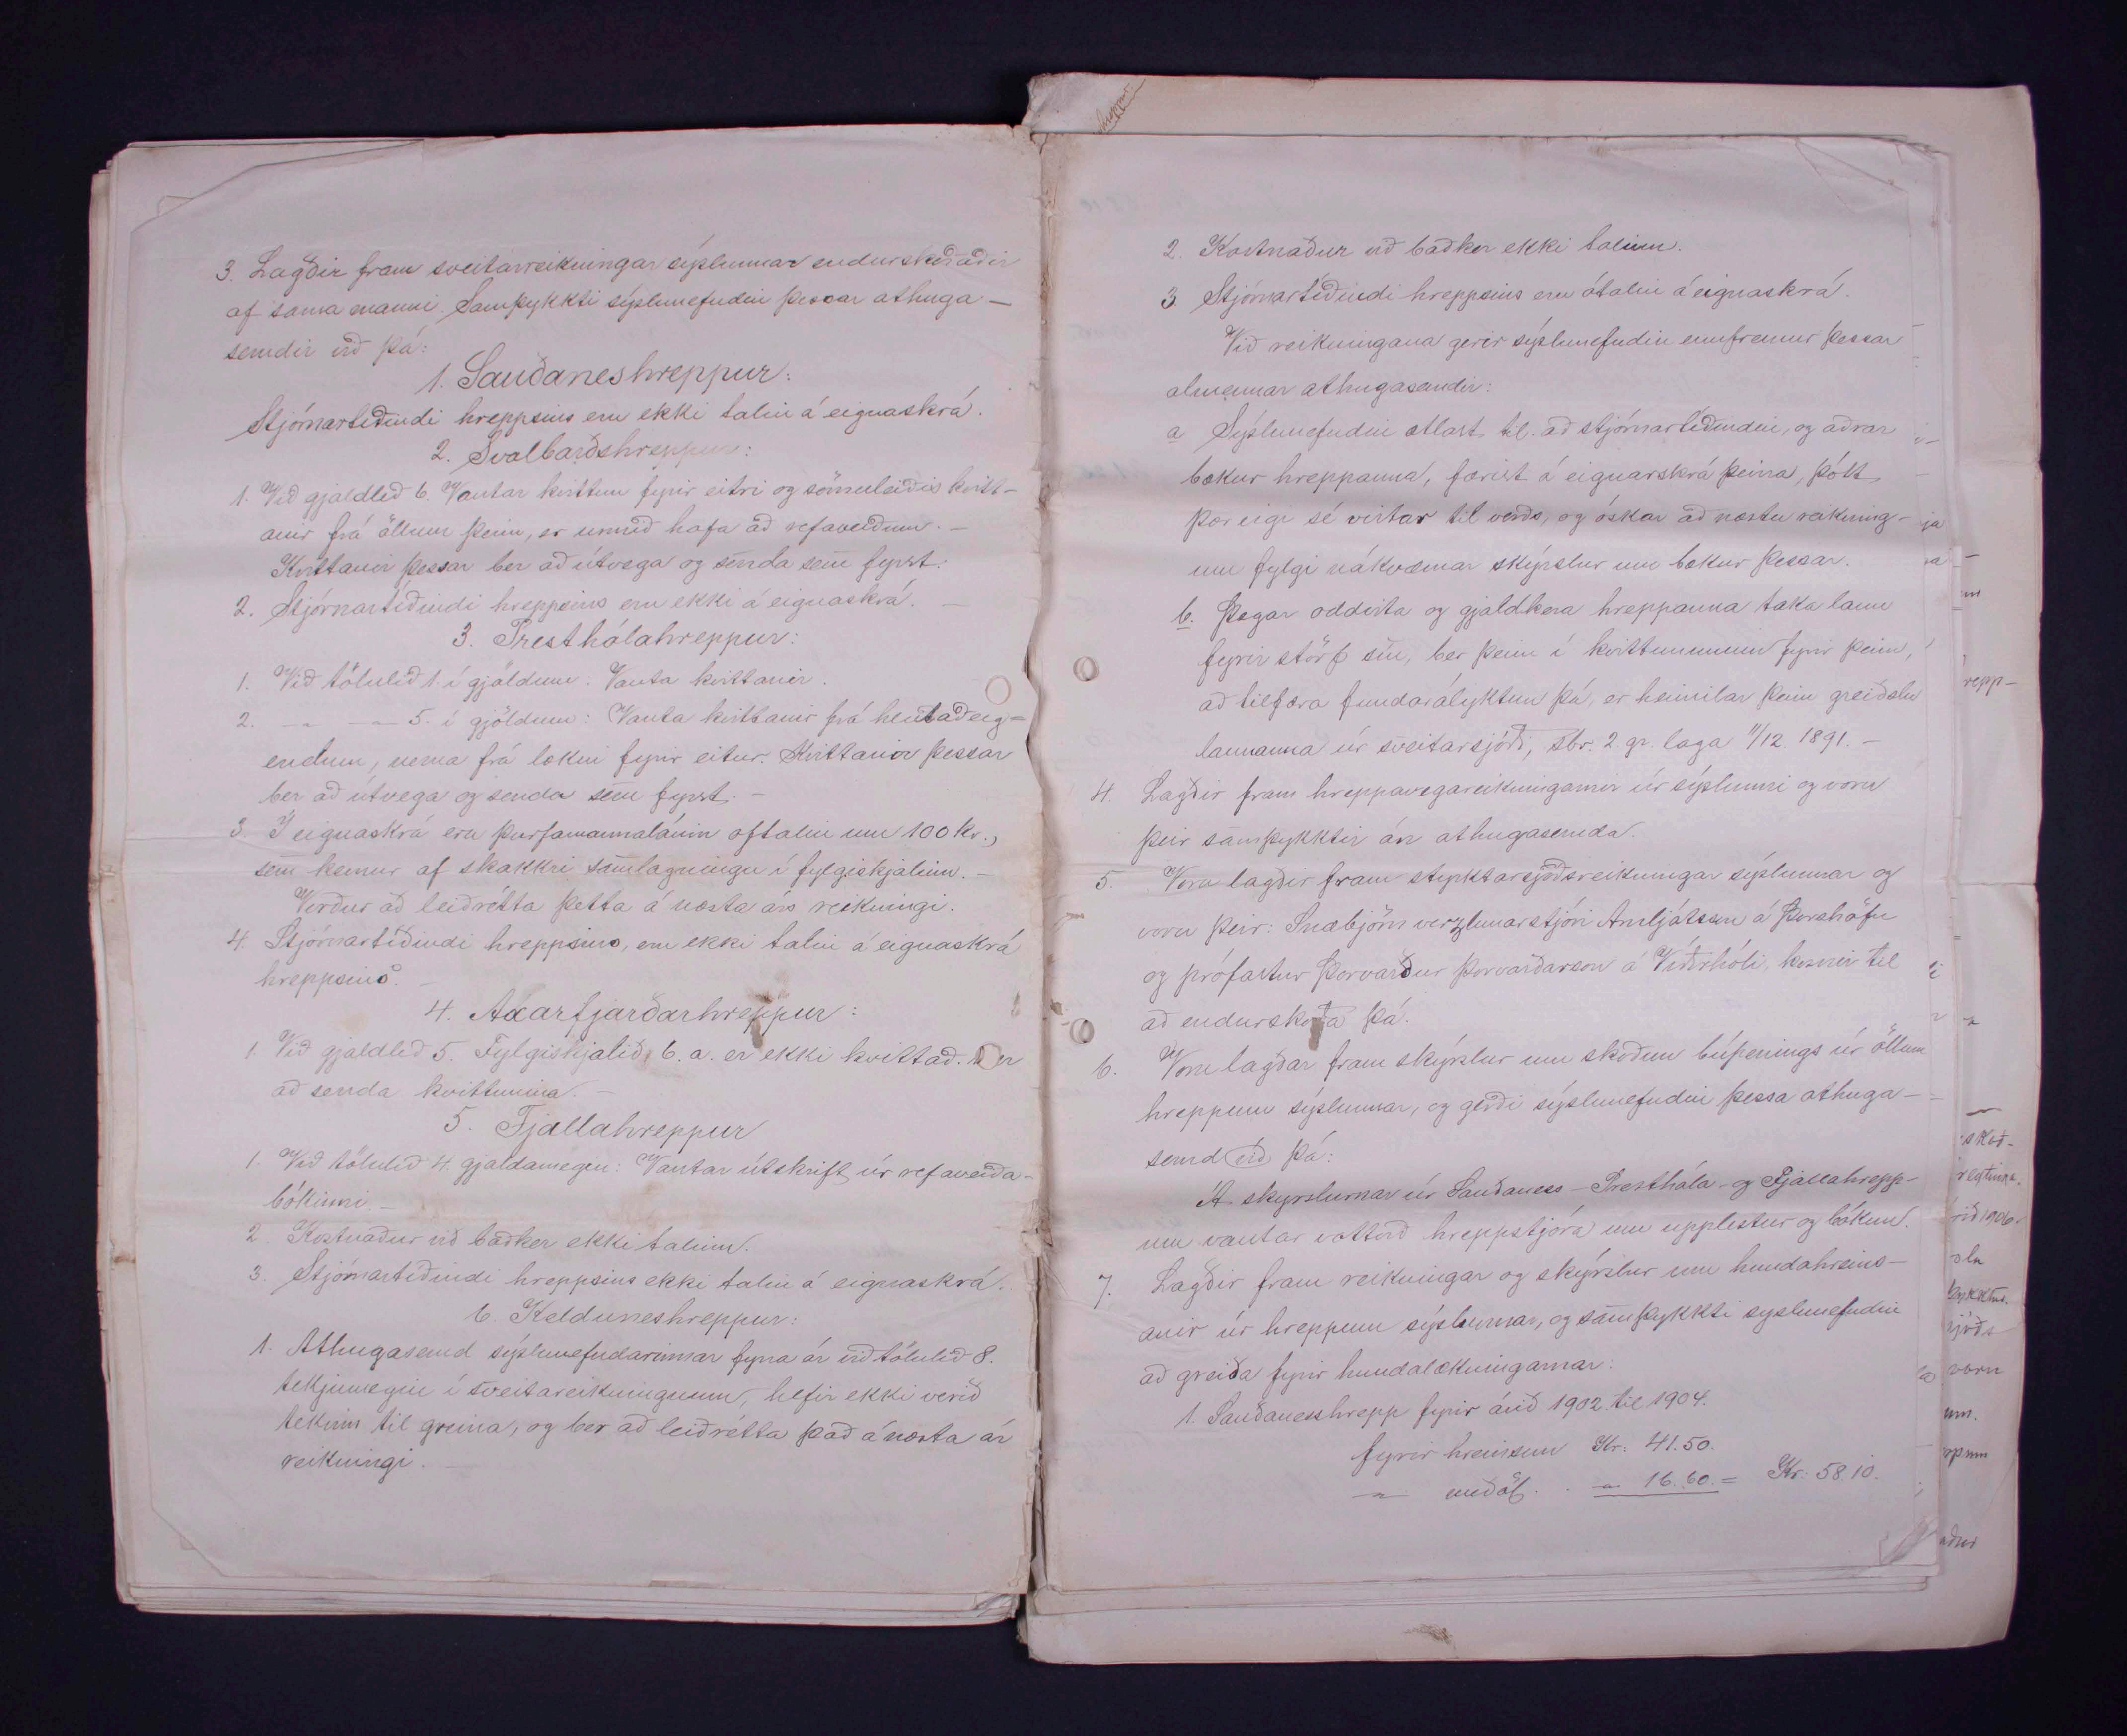 3. Lagðir fram sveitarreikningar sýslunnar endurskoðaðir
af sama manni. Samþykkti sýslunefndin þessar athuga-
semdir við þá:
1. Sauðaneshreppur:
Stjórnartíðindi hreppsins eru ekki talin á eignaskrá.
2. Svalbarðshreppur:
1. Við gjaldlið 6. Vantar kvittun fyrir eitri og sömuleiðis kvitt-
anir frá öllum þeim, er unnið hafa að refaveiðum. -
Kvittanir þessar ber að útvega og senda sem fyrst.
2. Stjórnartíðindi hreppsins eru ekki á eignaskrá. -
3. Presthólahreppur:
1. Við tölulið 1. í gjöldum: Vanta kvittanir.
2. - " - " 5. í gjöldum: Vanta kvittanir frá hlutaðeig=
endum, nema frá lækni fyrir eitur. Kvittanir þessar
ber að útvega og senda sem fyrst. -
3. Í eignaskrá eru þurfamannalánin oftalin um 100 kr.,
sem kemur af skakkri samlagningu í fylgiskjalinu. -
Verður að leiðrétta þetta á næsta árs reikningi.
4. Stjórnartíðindi hreppsins, eru ekki talin á eignaskrá
hreppsins. -
4. Axarfjarðarhreppur:
1. Við gjaldlið 5. Fylgiskjalið 6. a. er ekki kvittað. Ber
að senda kvittunina. -
5. Fjallahreppur
1. Við tölulið 4. gjaldamegin: Vantar útskrift úr refaveiða-
bókinni -
2. Kostnaður við baðker ekki talinn.
3. Stjórnartíðindi hreppsins ekki talin á eignaskrá.
6. Kelduneshreppur:
1. Athugasemd sýslunefndarinnar fyrra ár við tölulið 8.
tekjumegin í sveitareikningnum, hefir ekki verið
tekinn til greina, og ber að leiðrétta það á næsta ár
reikningi. -
hreppur
2. Kostnaður við baðker ekki talinn.
3 Stjórnartíðindi hreppsins eru ótalin á eignaskrá.
Við reikningana gerir sýslunefndin ennfremur þessar
almennar athugasemdir:
a Sýslunefndin ætlast til að stjórnartíðindin, og aðrar
bækur hreppanna, færist á eignarskrá þeirra, þótt
þær eigi sé virtar til verðs, og óskar að næstu reikning-
um fylgi nákvæmar skýrslur um bækur þessar.
b. Þegar oddvita og gjaldkera hreppanna taka laun
fyrir störf sín, ber þeim í kvittununum fyrir þeim,
að tilfæra fundarályktun þá, er heimilar þeim greiðslu
launanna úr sveitarsjóði, sbr. 2 gr. laga 11/12. 1891. -
4. Lagðir fram hreppavegareikningarnir úr sýslunni og voru
þeir samþykktir án athugasemda.
5. Voru lagðir fram styrktarsjóðsreikningar sýslunnar og
voru þeir: Snæbjörn verzlunarstjóri Arnljótsson á Þórshöfn
og prófastur Þorvarður Þorvarðarson á Víðirhóli, kosnir til
að endurskoða þá.
6. Voru lagðar fram skýrslur um skoðun búpenings úr öllum
hreppum sýslunnar, og gerði sýslunefndin þessa athuga-
semd við þá:
Á skyrslurnar úr Sauðaness - Presthóla - og Fjallahrepp-
um vantar vottorð hreppstjóra um upplestur og bókun.
7. Lagðir fram reikningar og skýrslur um hundahreins-
anir úr hreppum sýslunnar, og samþykkti syslunefndin
að greiða fyrir hundalækningarnar:
1. Sauðanesshrepp fyrir árið 1902. til 1904.
fyrir hreinsun Kr: 41.50.
- " - meðöl. . - " - 16.60. = Kr: 58.10.
repp-
skoð-
1906
sla
sjóðs
voru
um.